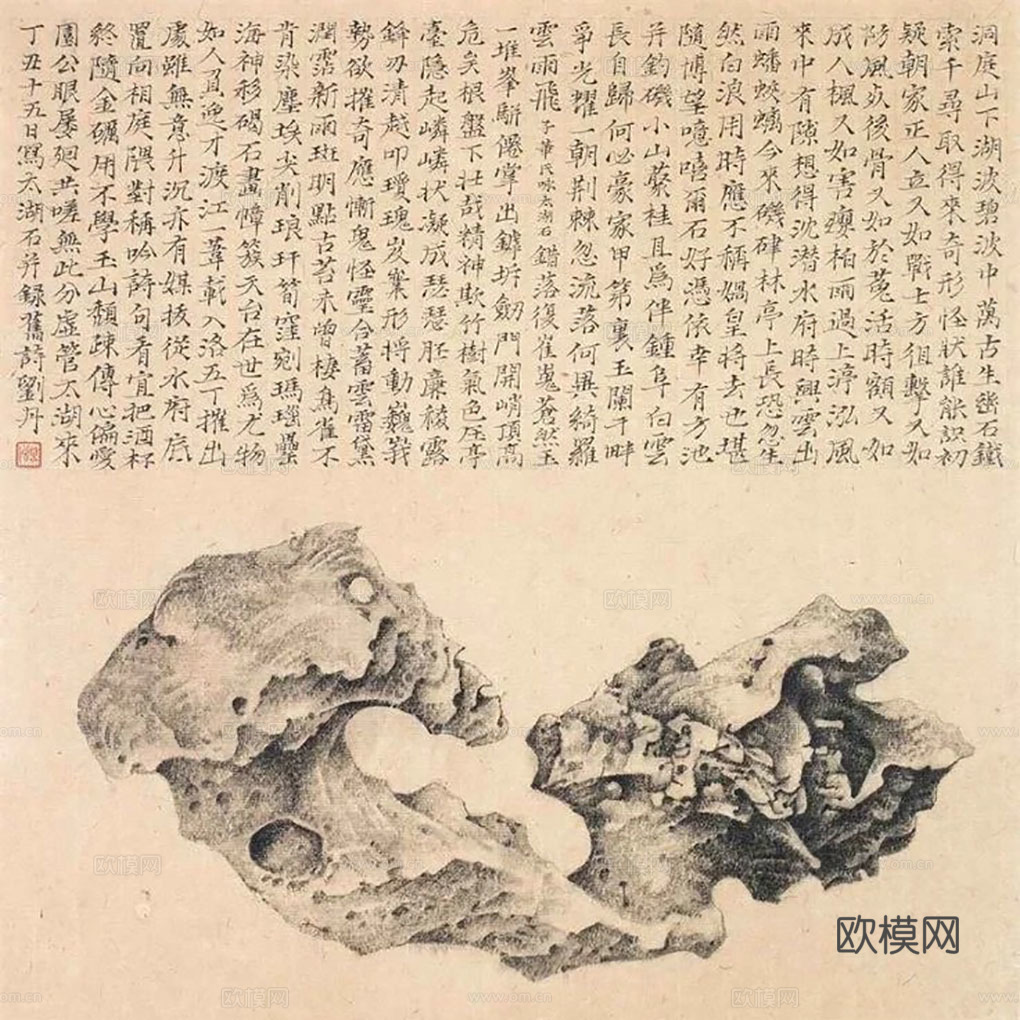 洞庭山下湖波碧波中萬古生幽石鐵
索千尋取得來奇形怪狀誰能識初
疑朝家正人立又如戰士方狙擊又如
防風死後骨又如於菟活時額又如
成人楓又如害癭柏雨過上渟泓風
來中有隙想得沈潜水府時興雲出
雨蟠蛟螭今來磯硉林亭上長恐忽生
然白浪用時應不稱媧皇將去也堪
隨博望噫嘻爾石好憑依幸有方池
并釣磯小山叢桂且爲伴鍾阜白雲
長自歸何必豪家甲第裏玉闌干畔
爭光耀一朝荆棘忽流落何異綺羅
雲雨飛子華氏咏太湖石錯落復崔嵬蒼然玉
一堆峯駢僊掌出罅坼劒門開峭頂高
危矣根盤下壮哉精神欺竹樹氣色压亭
臺隐起嶙嶙状凝成瑟瑟胚廉稜露
鋒刃清越叩瓊瑰岌嶪形捋動巍峩
勢欲摧奇應慚鬼怪靈合蓄雲雷黛
潤霑新雨斑明點古苔未曾棲鳥雀不
肯染塵埃尖削琅玕筍窪剜瑪瑙罍
海神移碣石畫幛簇天台在世爲尤物
如人負逸才渡江一葦載入洛五丁推出
處雖無意升沉亦有媒拔從水府底
置向相庭隈對稱吟詩句看宜把酒杯
終隨金礪用不學玉山頽疎傅心偏愛
園公眼屡廻共嗟無此分虚管太湖來
丁丑十五日寫太湖石并録舊詩劉丹
欧模网